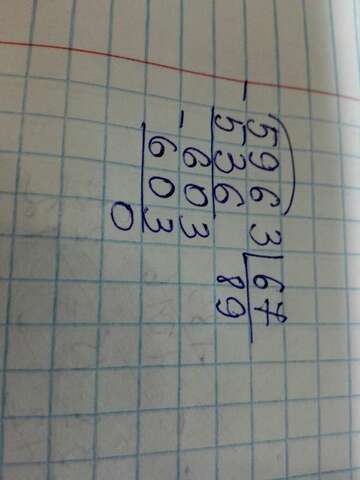 5963 67
- 536 89
603
- 603
0